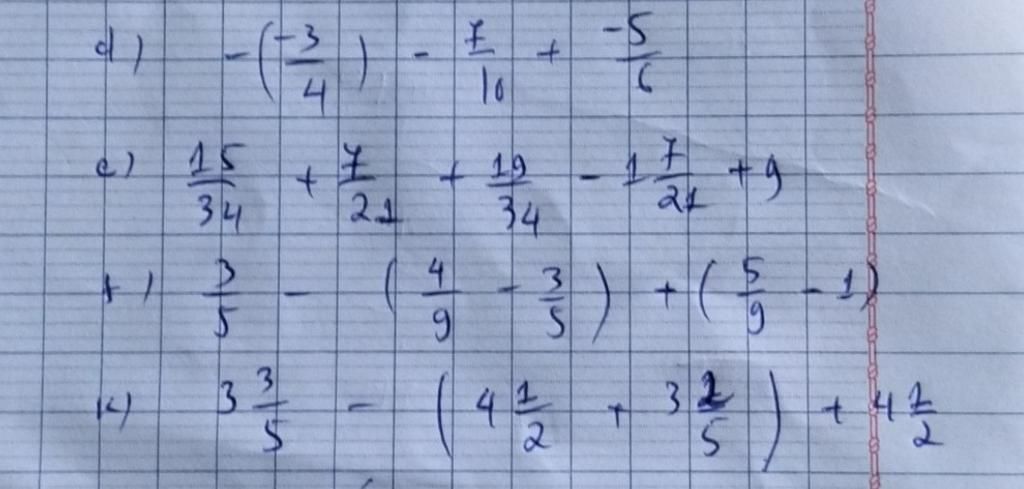 d) -(-3/4) - 7/10 + -5/6
e) 15/34 + 7/21 + 19/34 - 1 7/21 + 9
f) 3/5 - (4/9 - 3/5) + (5/9 - 1)
k) 3 3/5 - (4 1/2 + 3 2/5) + 4 1/2